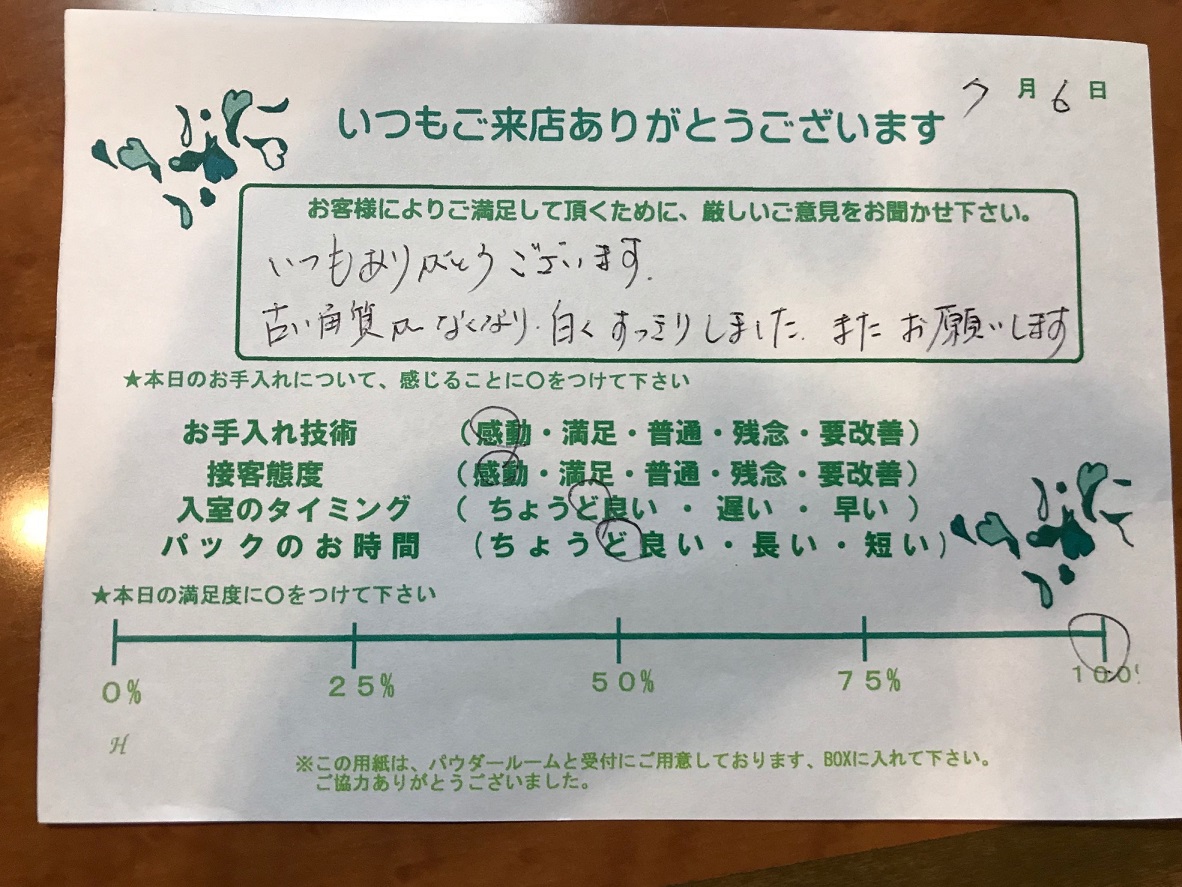 7月6日
いつもご来店ありがとうございます
お客様によりご満足して頂くために、厳しいご意見をお聞かせ下さい。
いつもありがとうございます.
古い角質がなくなり.白くすっきりしました.またお願いします
★本日のお手入れについて、感じることに〇をつけて下さい
お手入れ技術 （感動・満足・普通・残念・要改善）
接客態度 （感動・満足・普通・残念・要改善）
入室のタイミング （ ちょうど良い ・ 遅い ・ 早い ）
パックのお時間 （ちょうど良い・長い・短い）
★本日の満足度に〇をつけて下さい
0% 25% 50% 75% 100%
H
※この用紙は、パウダールームと受付にご用意しております、BOXに入れて下さい。
ご協力ありがとうございました。